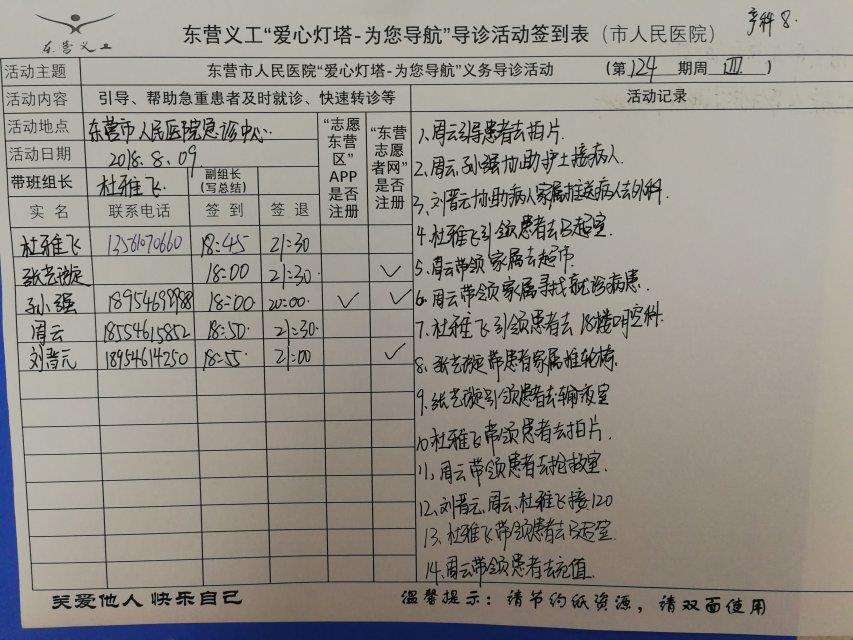 产科 8.
东营义工
东营义工“爱心灯塔-为您导航”导诊活动签到表（市人民医院）
活动主题 东营市人民医院“爱心灯塔-为您导航”义务导诊活动 （第 124 期周 四 ）
活动内容 引导、帮助急重患者及时就诊、快速转诊等 活动记录
活动地点 东营市人民医院急诊中心
活动日期 2018.8.09.
带班组长 杜雅飞 副组长（写总结）
“志愿东营区”APP是否注册
“东营志愿者网”是否注册
实名 联系电话 签到 签退
杜雅飞 13561070660 18:45 21:30
张艺璇 18:00 21:30 ✓
孙强 18954699988 18:00 20:00 ✓ ✓
周云 18554615852 18:50 21:30
刘晋元 18954614250 18:55 21:00 ✓
1、周云引导患者去拍片.
2、周云,孙强协助护士接病人.
3、刘晋元协助病人家属推送病人去外科.
4、杜雅飞引领患者去B超室.
5、周云带领家属去超市
6、周云带领家属寻找就诊病患.
7、杜雅飞引领患者去18楼口腔科.
8、张艺璇带患者家属推轮椅.
9、张艺璇引领患者去输液室
10、杜雅飞带领患者去拍片.
11、周云带领患者去抢救室.
12、刘晋元、周云、杜雅飞接120
13、杜雅飞带领患者去B超室.
14、周云带领患者去充值.
关爱他人 快乐自己 温馨提示：请节约纸资源，请双面使用